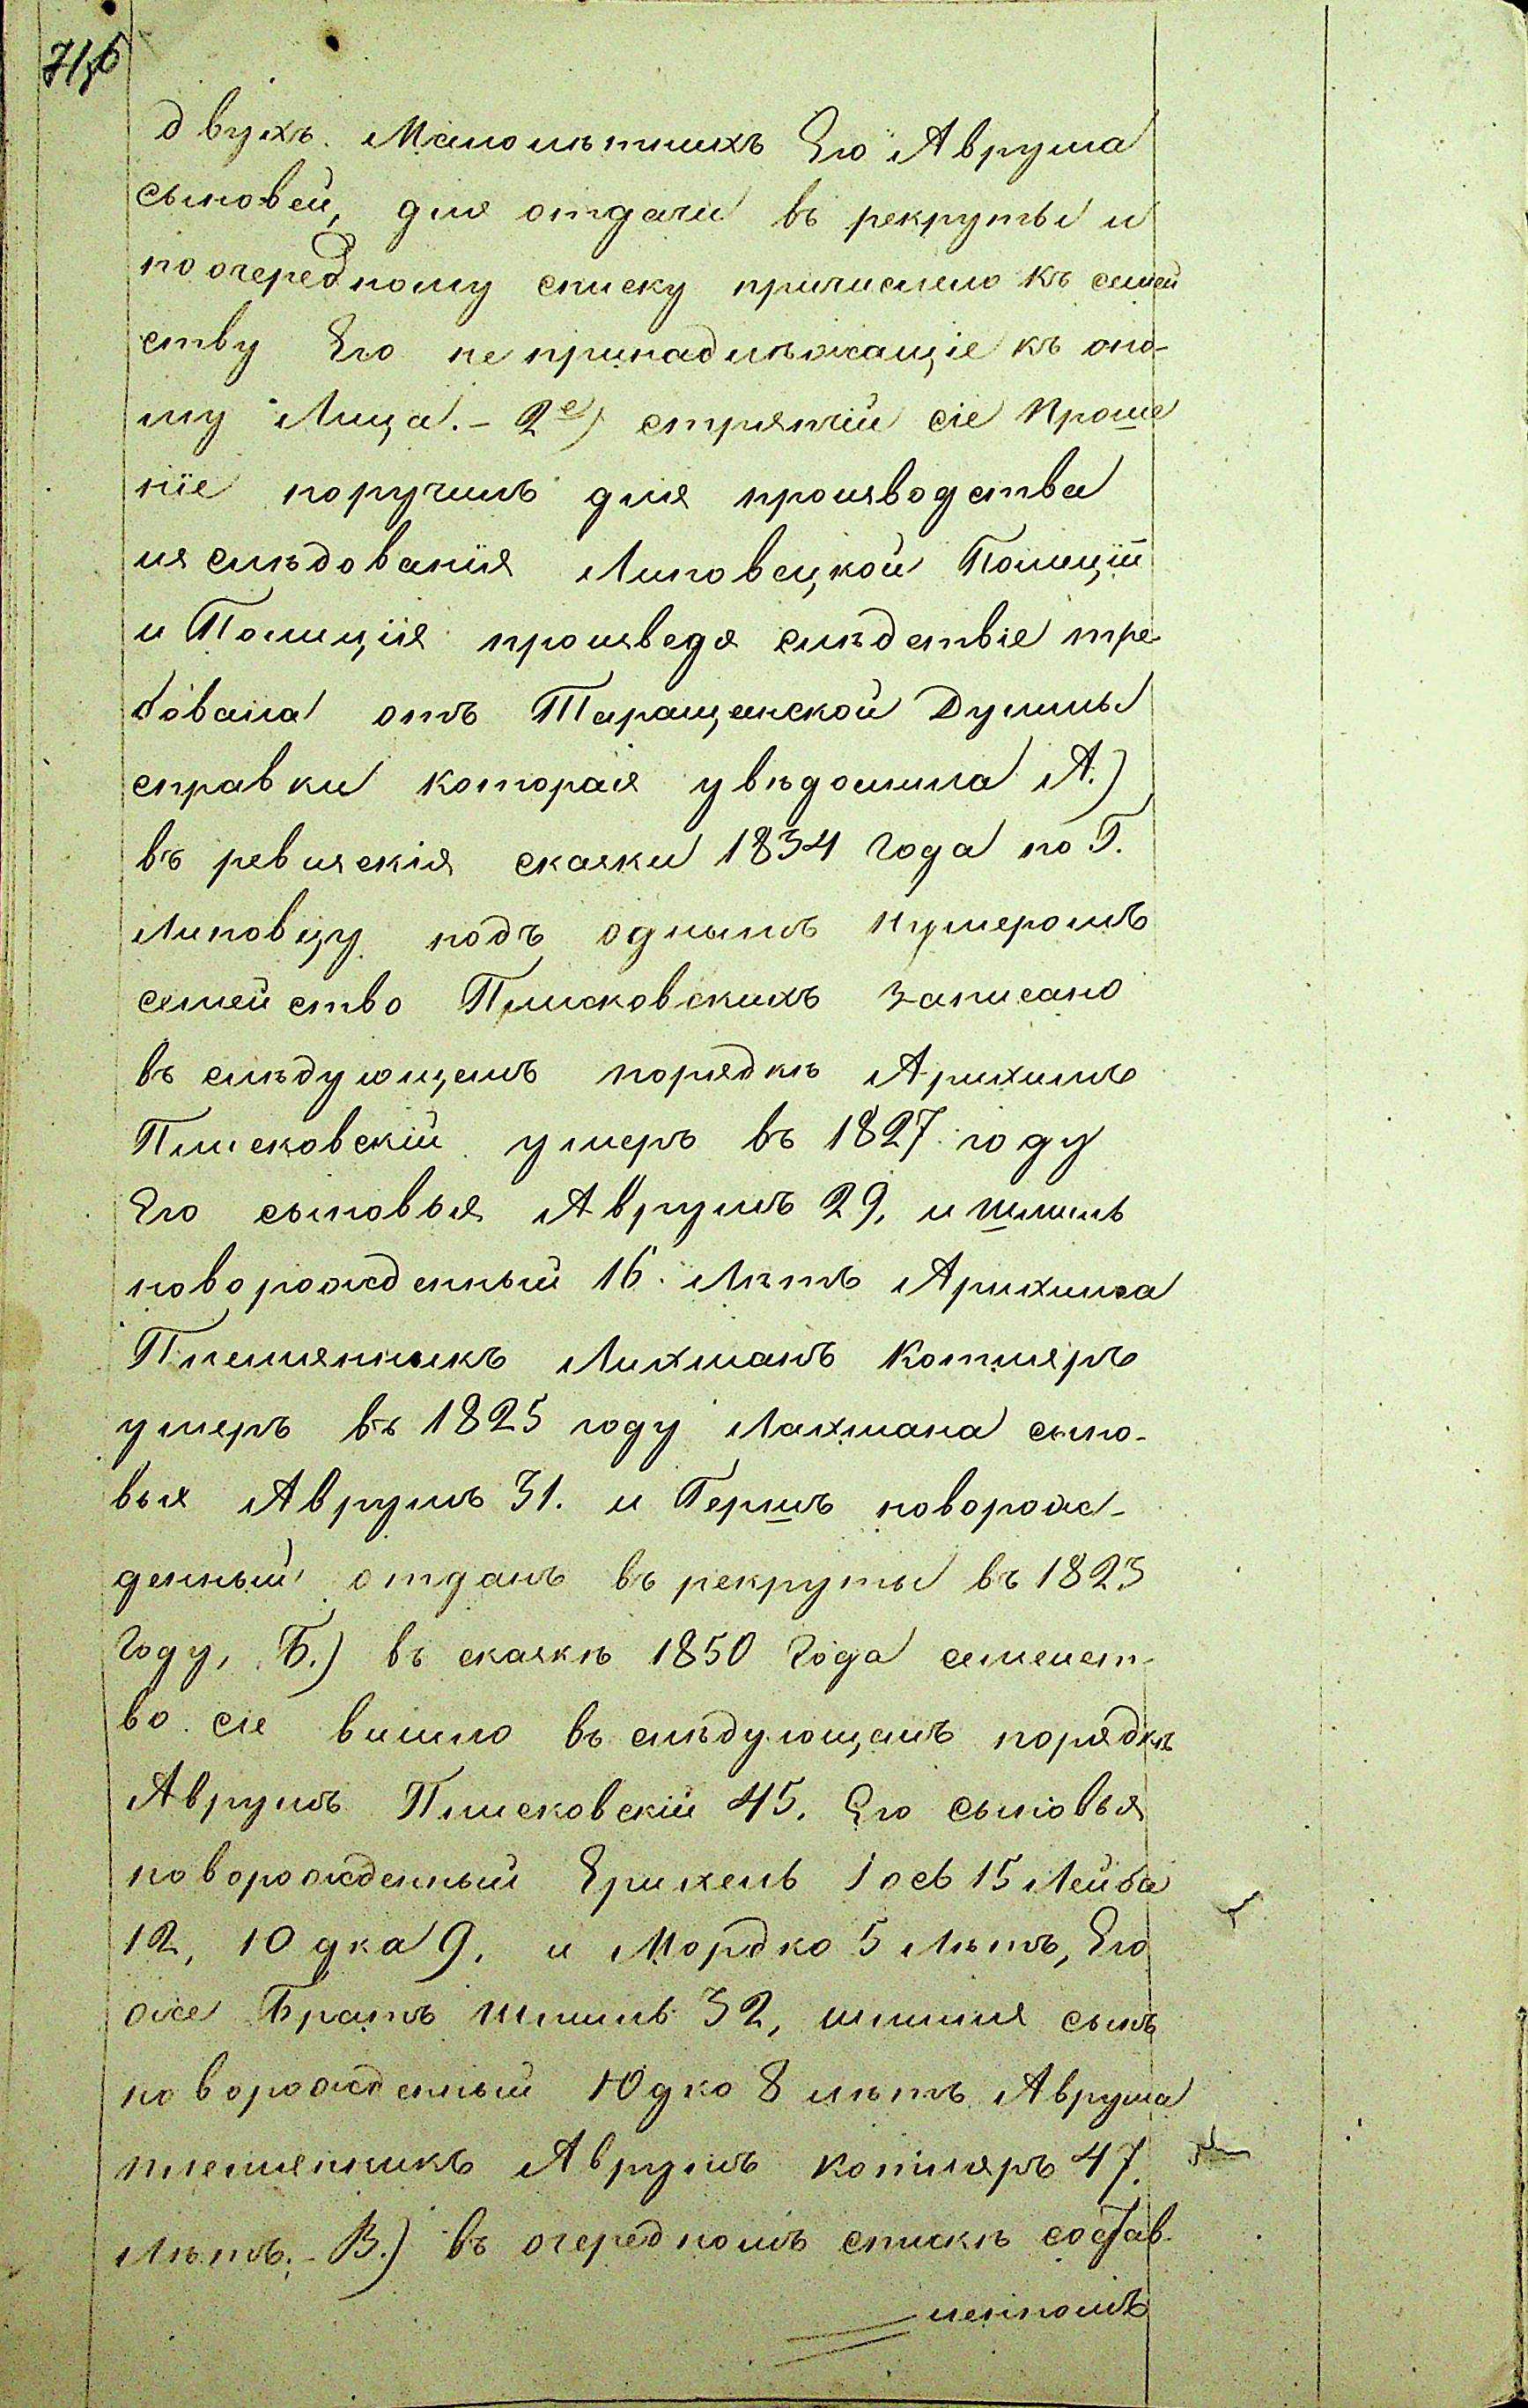 71,б
двухъ. Малолѣтнихъ Его Аврума
сыновей, для отдачи въ рекруты и
по очередному списку причислено къ семей
ству Его не принадлѣжащіе къ оно-
му Лица. - 2е) стряпчій сіе Проше
ніе поручилъ для производства
изслѣдованія Липовецкой Полиціи
и Полиція произведя слѣдствіе тре-
бовала отъ Таращанской Думмы
справки которая увѣдомила А.)
въ ревизскія сказки 1834 Года по Г.
Липовцу подъ однымъ Нумеромъ
семейство Плисковскихъ записано
въ слѣдующемъ порядкѣ Арихимъ
Плисковскій умеръ въ 1827. году
Его сыновья Аврумъ 29, и Шмиль
новорожденный 16. Лѣтъ Арихима
Племянныкъ Лихманъ Котляръ
умеръ въ 1825 году Лахмана сыно-
вья Аврумъ 31. и Гершъ новорож-
денный отданъ въ рекруты въ 1823
Году, Б.) въ сказкѣ 1850 Года семейст-
во сіе вишло въ слѣдующемъ порядкѣ
Аврумъ Плисковскій 45. Его сыновья
новорожденный Ерихемъ Іось 15 Лейба
12, Юдка 9, и Мордко 5 Лѣтъ, Его
же Братъ Шмиль 32, шмиля сынъ
новорожденный Юдко 8 лѣтъ Аврума
племянникъ Аврумъ Котляръ 47.
Лѣтъ. - В.) въ очередномъ спискѣ состав-
ленномъ